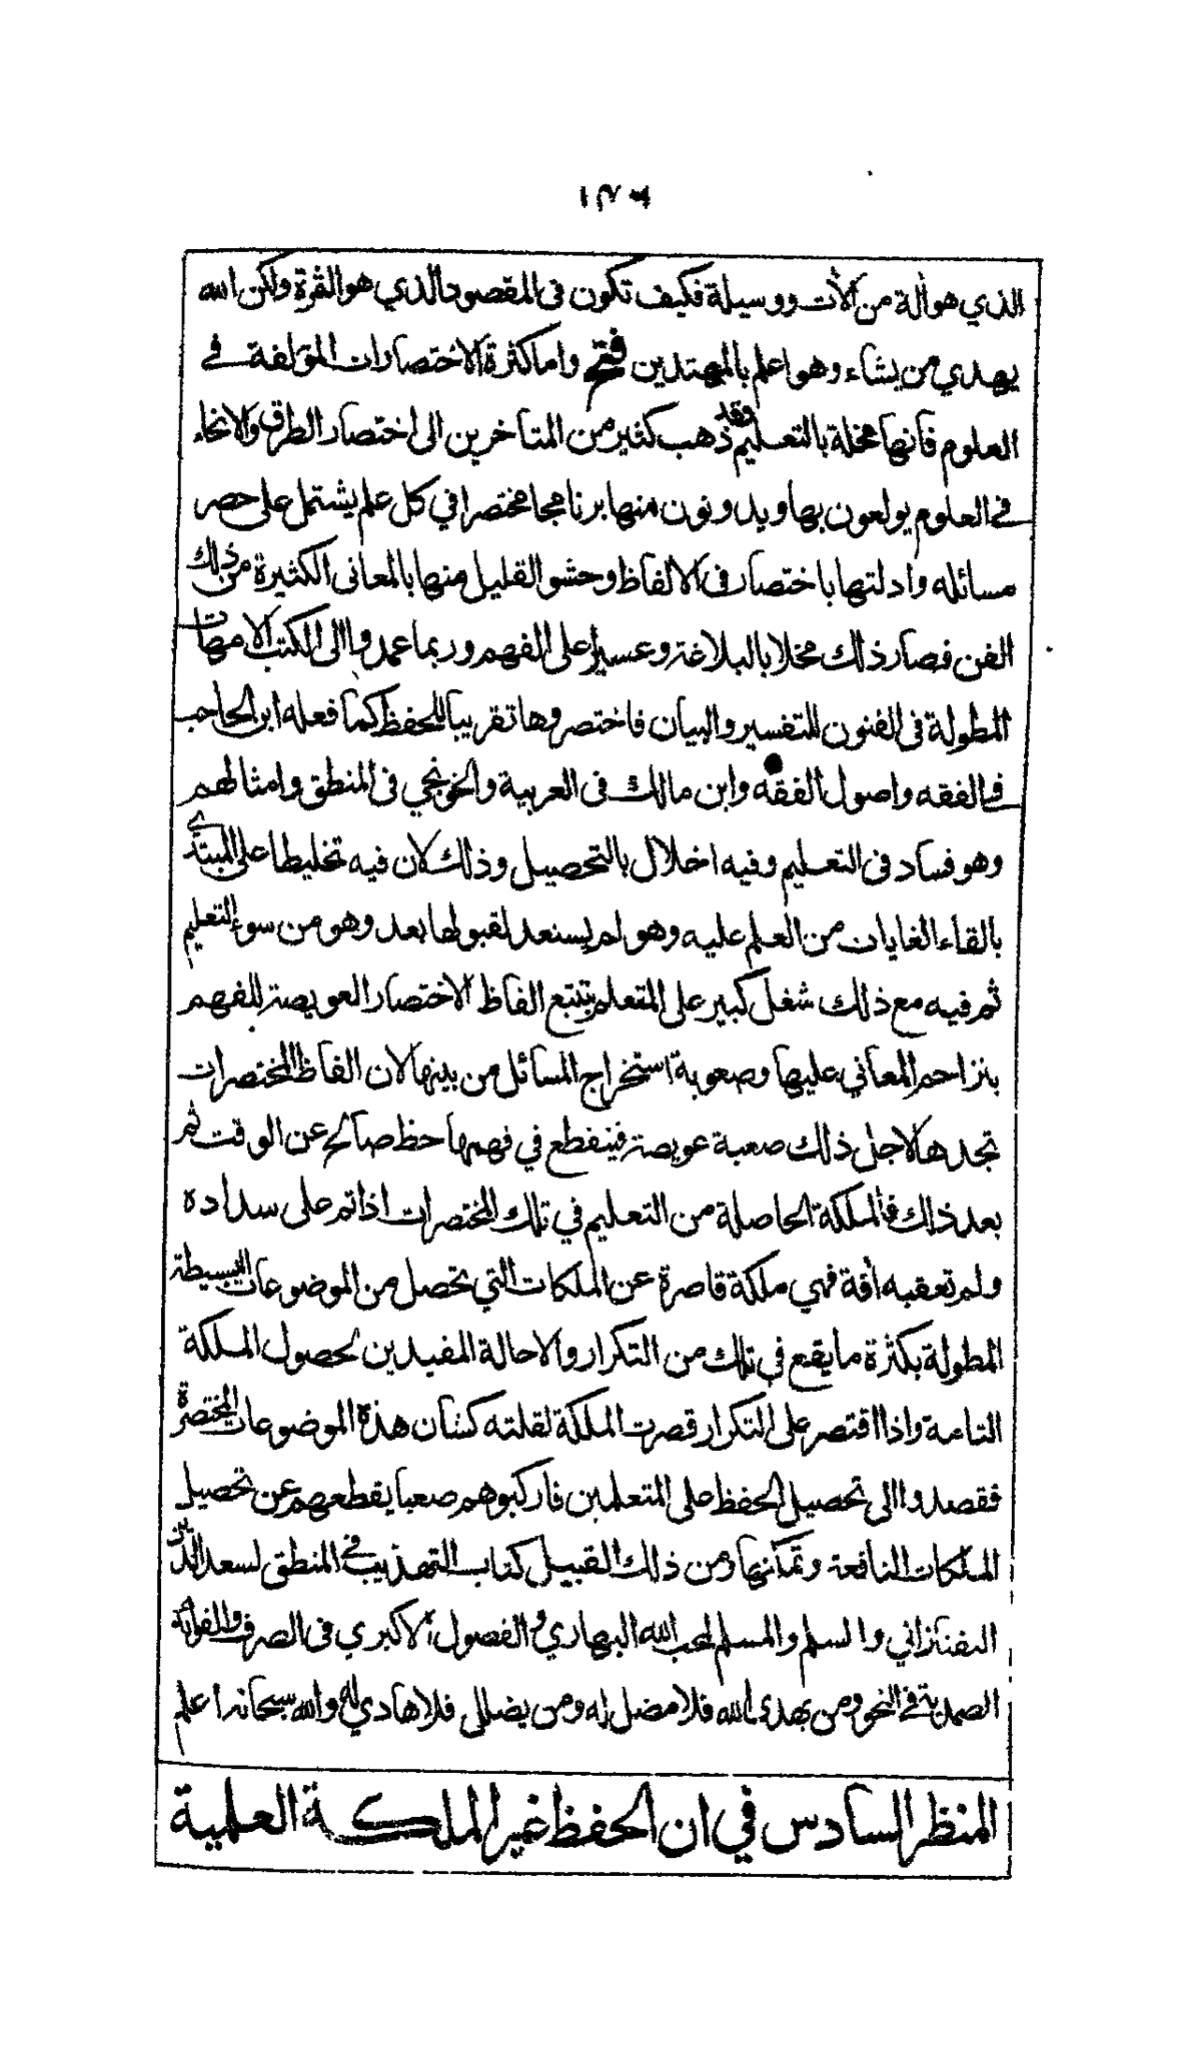 الذي هو آلة من آلات ووسيلة فكيف تكون في المقصود الذي هو الثمرة ولكن الله
يهدي من يشاء وهو اعلم بالمهتدين فتح واما كثرة الاختصارات المؤلفة في
العلوم فأنها مخلة بالتعليم وقد ذهب كثير من المتاخرين الى اختصار الطرق والانحاء
في العلوم يولعون بها ويدونون منها برنامجا مختصرا في كل علم يشتمل على حصر
مسائله وأدلتها باختصار في الالفاظ وحشو القليل منها بالمعاني الكثيرة من ذلك
الفن فصار ذلك مخلا بالبلاغة وعسيرا على الفهم وربما عمدوا الى الكتب الامهات
المطولة في الفنون للتفسير والبيان فاختصروها تقريبا للحفظ كما فعله ابن الحاجب
في الفقه واصول الفقه وابن مالك في العربية والخونجي في المنطق وامثالهم
وهو فساد في التعليم وفيه اخلال بالتحصيل وذلك لان فيه تخليطا على المبتدي
بالقاء الغايات من العلم عليه وهو لم يستعد لقبولها بعد وهو من سوء التعليم
ثم فيه مع ذلك شغل كبير على المتعلم بتتبع الفاظ الاختصار العويصة للفهم
بتزاحم المعاني عليها وصعوبة استخراج المسائل من بينها لان الفاظ المختصرات
تجدها لاجل ذلك صعبة عويصة فينقطع في فهمها حظ صالح عن الوقت ثم
بعد ذلك فالملكة الحاصلة من التعليم في تلك المختصرات اذا تم على سداده
ولم تعقبه أفة فهي ملكة قاصرة عن الملكات التي تحصل من الموضوعات البسيطة
المطولة بكثرة ما يقع في تلك من التكرار والاحالة المفيدين لحصول الملكة
التامة واذا اقتصر على التكرار قصرت الملكة لقلته كشان هذه الموضوعات المختصرة
فقصدوا الى تحصيل الحفظ على المتعلمين فاركبوهم صعبا يقطعهم عن تحصيل
الملكات النافعة وتمكنها ومن ذلك القبيل كتاب التهذيب في المنطق لسعد الدين
التفتازاني والسلم والمسلم لمحب الله البهاري والفصول الاكبري في الصرف والفوائد
الصمدية في النحو ومن يهدي الله فلا مضل له ومن يضلل فلا هادي له والله سبحانه اعلم
المنظر السادس في ان الحفظ غير الملكة العلمية